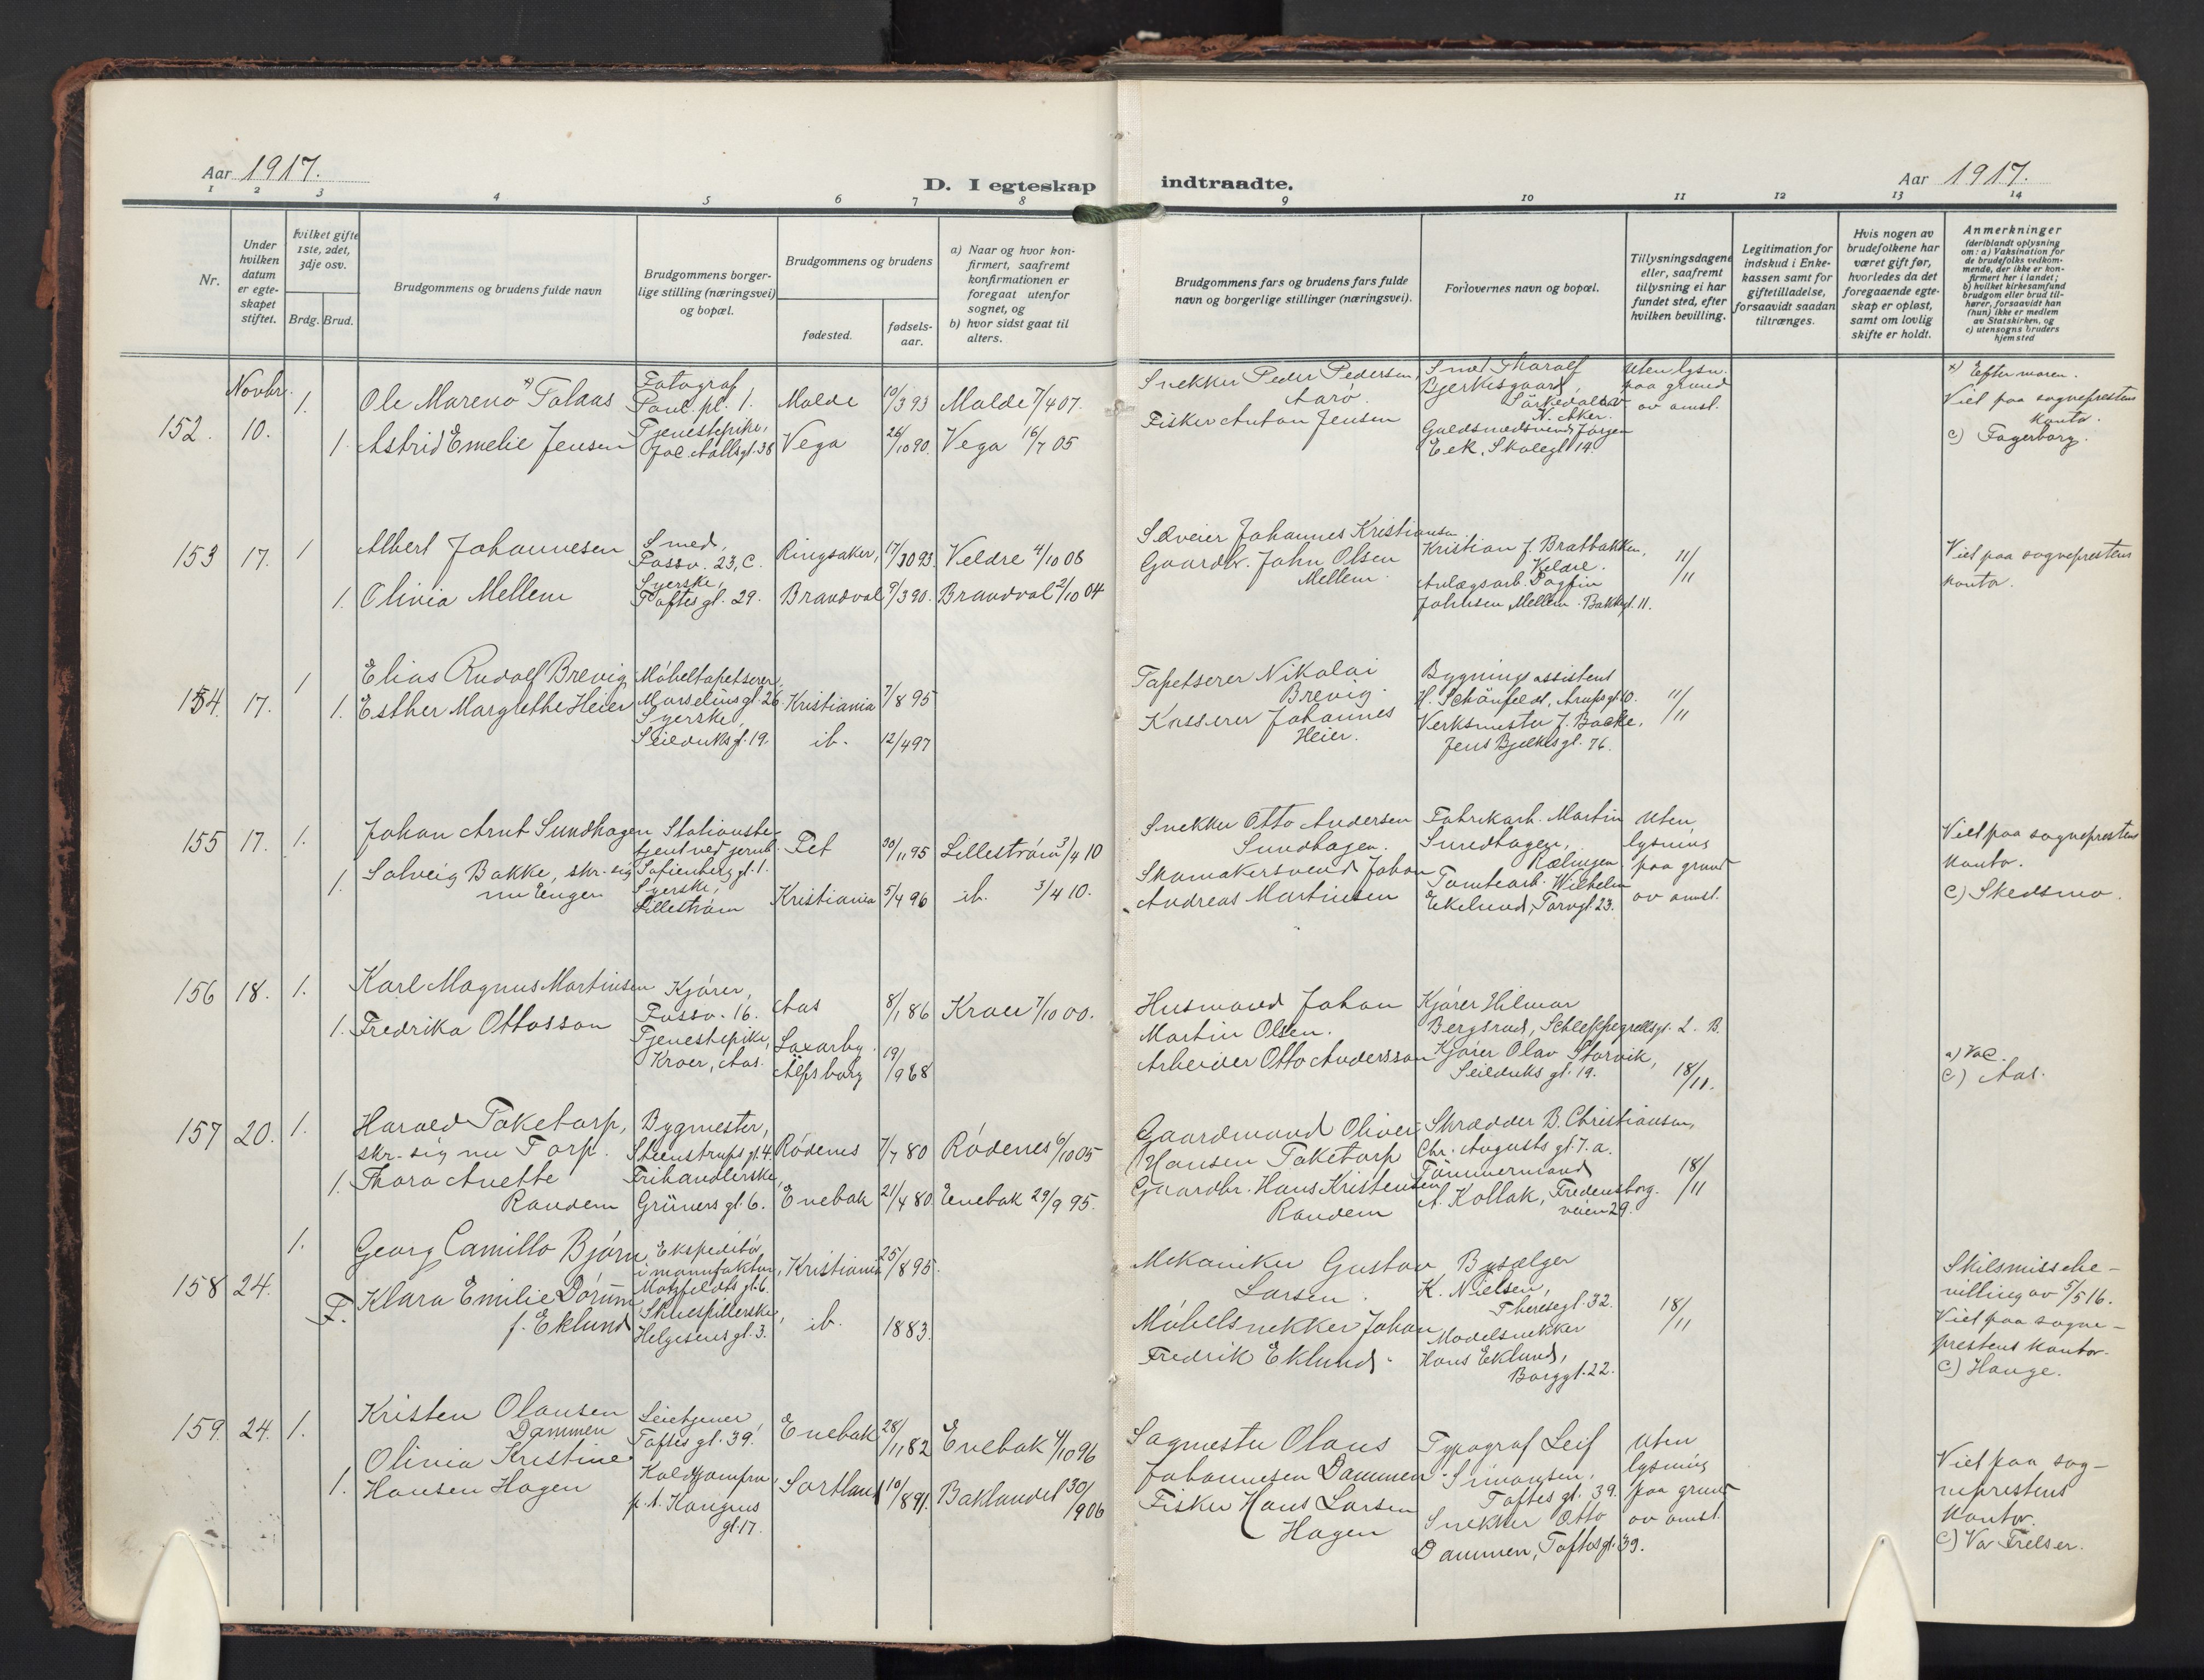 Aar 1917.
D. I egteskap indtraadte.
Aar 1917.
1 2 3 4 5 6 7 8 9 10 11 12 13 14
Nr.
Under hvilken datum er egteskapet stiftet.
Hvilket gifte 1ste, 2det, 3dje osv.
Brdg. Brud.
Brudgommens og brudens fulde navn
Brudgommens borgerlige stilling (næringsvei) og bopæl.
Brudgommens og brudens
fødested.
fødselsaar.
a) Naar og hvor konfirmert, saafremt konfirmationen er foregaat utenfor sognet, og
b) hvor sidst gaat til alters.
Brudgommens fars og brudens fars fulde navn og borgerlige stillinger (næringsvei).
Forlovernes navn og bopæl.
Tillysningsdagene eller, saafremt tillysning ei har fundet sted, efter hvilken bevilling.
Legitimation for indskud i Enkekassen samt for giftetilladelse, forsaavidt saadan tiltrænges.
Hvis nogen av brudefolkene har været gift før, hvorledes da det foregaaende egteskap er opløst, samt om lovlig skifte er holdt.
Anmerkninger
(deriblandt oplysning om: a) Vaksination for de brudefolks vedkommende, der ikke er konfirmert her i landet; b) hvilket kirkesamfund brudgom eller brud tilhører, forsaavidt han (hun) ikke er medlem av Statskirken, og c) utensogns bruders hjemsted
Novbr.
152. 10. 1.
Ole Mareno x) Talaas
Fotograf
Paul. pl. 1.
Molde 10/3 93 Molde 7/4 07.
1. Astrid Emelie Jensen
Tjenestepike,
Jac. Aallsgt. 38
Vega 26/10 90. Vega 16/7 05
Snekker Peder Pedersen,
Aarø.
Fisker Anton Jensen
Smed Tharalf
Bjerkesgaard,
Sørkedalen
N. Aker.
Guldsmedsvend Jørgen
Eek, Skolegt. 14.
Uten lysn.
paa grund
av amst.
x) Efter moren.
Viet paa sogneprestens
kontor.
c) Fagerborg.
153 17. 1
Albert Johannesen
Smed,
Fossv. 23, C.
Ringsaker, 17/30 93 Veldre 4/10 08
1. Olivia Mellem
Syerske,
Toftesgt. 29.
Brandval 9/3 90. Brandval 2/10 04
Selveier Johannes Kristiansen.
Gaardbr. John Olsen
Mellem.
Kristian J. Bratbakken,
Veldre.
Anlægsarb. Dagfin
Johnsen Mellem. Bakkegt. 11.
11/11
Viet paa sogneprestens
kontor.
154. 17. 1
Elias Rudolf Brevig
Møbeltapetserer
Marseliusgt. 26.
Kristiania 7/8 95
1. Esther Margrethe Heier
Syerske,
Seilduksgt. 19.
ib. 12/4 97
Tapetserer Nikolai
Brevig.
Kasserer Johannes
Heier.
Bygningsassistent
H. Schønfeldt, Arupsgt. 10.
Verksmester J. Backe,
Jens Bjelkesgt. 76.
11/11
155 17. 1.
Johan Arnt Sundhagen
Stationsbe-
tjent ved jernb.
Sofienberggt. 1.
Fet 30/11 95 Lillestrøm 3/4 10
1. Solveig Bakke, skr. sig
nu Enger
Syerske,
Lillestrøm
Kristiania 5/4 96 ib. 3/4 10.
Snekker Otto Andersen
Sundhagen.
Skomakersvend Johan
Andreas Martinsen
Fabrikarb. Martin
Sundhagen,
Rælingen.
Tomtearb. Wilhelm
Ekelund, Torvgt. 23.
Uten
lysning
paa grund
av amst.
Viet paa sogneprestens
kontor.
c) Skedsmo.
156 18. 1.
Karl Magnus Martinsen
Kjører,
Fossv. 16.
Aas 8/1 86 Kroer 7/10 00.
1. Fredrika Ottosson
Tjenestepike,
Kroer, Aas.
Laxarby.
Älfsborg 19/9 88
Husmand Johan
Martin Olsen.
Arbeider Otto Andersson
Kjører Hilmar
Bergsrud, Schleppegrellsgt. 2. B.
Kjører Olav Storvik,
Seilduksgt. 19.
18/11.
a) Vac.
c) Aas.
157 20. 1.
Harald Taketorp,
skr. sig nu Torp.
Bygmester,
Steenstrupsgt. 4.
Rødenes 7/7 80 Rødenes 6/10 05
1. Thora Anette
Randem
Frihandlerske,
Grünersgt. 6.
Enebak 21/4 80. Enebak 29/9 95.
Gaardmand Oliver
Hansen Taketorp
Gaardbr. Hans Kristensen
Randem
Skrædder B. Christiansen,
Chr. Augusts gt. 7. a.
Tømmermand
A. Kollak, Fredensborg.
veien 29.
18/11
158 24. 1.
Georg Camillo Bjørn
Ekspeditør
i manufaktur,
Motzfeldts gt. 6.
Kristiania 25/8 95.
F. Klara Emilie Dørum
f. Eklund
Skuespillerske,
Helgesens gt. 3.
ib. 1883.
Mekaniker Gustav
Larsen.
Møbelsnekker Johan
Fredrik Eklund.
Bysælger
K. Nielsen,
Theresegt. 32.
Modelsnekker
Hans Eklund,
Borggt. 22.
18/11
Skilsmissebe-
villing av 5/5 16.
Viet paa sogne-
prestens kontor.
c) Hauge.
159. 24. 1.
Kristen Olausen
Dammen
Leietjener,
Toftes gt. 39.
Enebak 28/11 82 Enebak 4/10 96
1. Olivia Kristine
Hansen Hagen
Koldtjomfru,
p. t. Kongens
gt. 17.
Sortland 10/8 91. Baklandet 30/9 06
Sagmester Olaus
Johannesen Dammen
Fisker Hans Larsen
Hagen
Typograf Leif
Simonsen,
Toftes gt. 39.
Snekker Otto
Dammen, Toftesgt. 39.
Uten
lysning
paa grund
av amst.
Viet paa sog-
neprestens
kontor.
c) Vor Frelser.